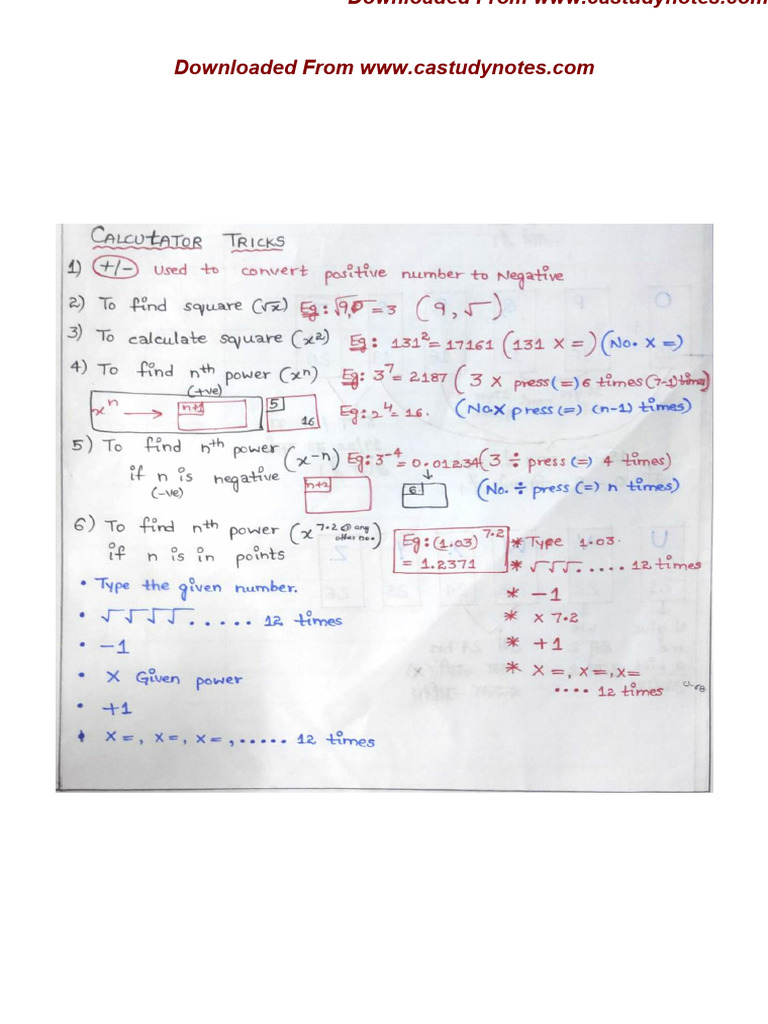 Downloaded From www.castudynotes.com
Downloaded From www.castudynotes.com
CALCUTATOR TRICKS
1) +/- used to convert positive number to Negative
2) To find square (√x) Eg: √9 = 3 (9, √)
3) To calculate square (x²) Eg: 131² = 17161 (131 X =) (No. X =)
4) To find nth power (xⁿ) Eg: 3⁷ = 2187 (3 x press (=) 6 times (7-1) times)
(+ve)
xⁿ → n+1 5 16 Eg: 2⁴ = 16. (No.X press (=) (n-1) times)
5) To find nth power (x⁻ⁿ) Eg: 3⁻⁴ = 0.01234 (3 ÷ press (=) 4 times)
if n is negative n+2 6 (No. ÷ press (=) n times)
(-ve)
6) To find nth power (x 7.2 @ any other no.)
if n is in points
Eg: (1.03)^7.2
= 1.2371
* Type 1.03.
* √√√..... 12 times
* -1
* x 7.2
* +1
* X =, X =, X =
.... 12 times
• Type the given number.
• √√√√..... 12 times
• -1
• X Given power
• +1
• X =, X =, X =, ..... 12 times